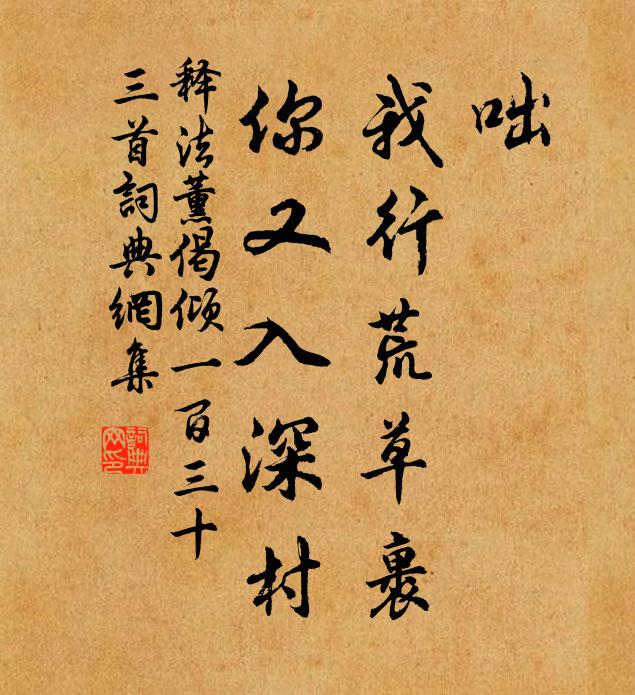 咄
我行荒草裹
你又入深村
释法薰偈倾一百三十
三首詞典網集
詞典網印